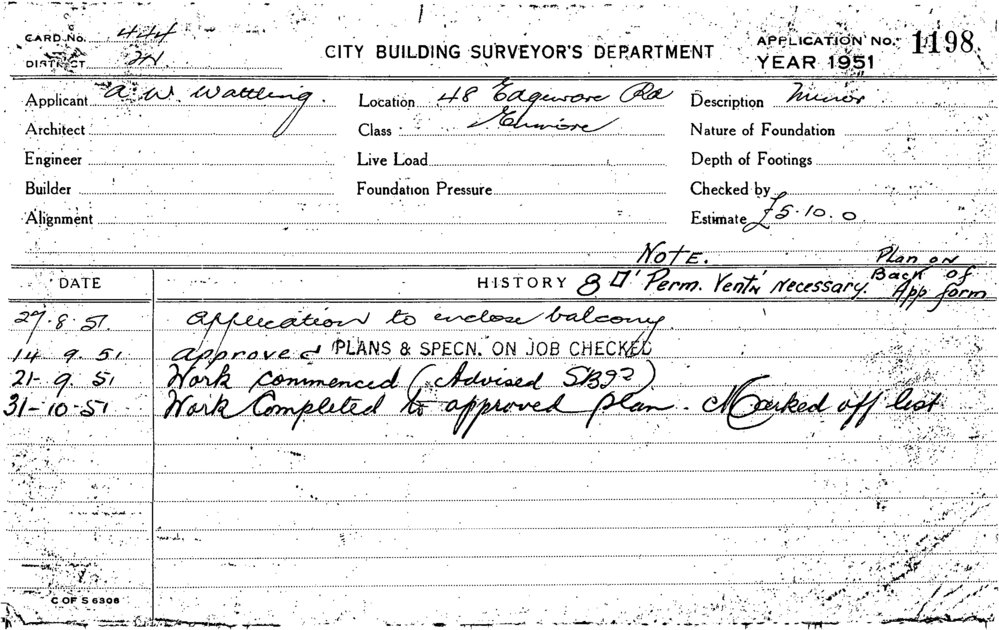 CARD No. 444
DISTRICT 21
CITY BUILDING SURVEYOR'S DEPARTMENT
APPLICATION No. 1198
YEAR 1951
Applicant A. W. Wattling.
Location 48 Edgeware Rd
Enmore
Description Minor
Architect
Class
Nature of Foundation
Engineer
Live Load
Depth of Footings
Builder
Foundation Pressure
Checked by
Alignment
Estimate £5.10.0
NOTE.
Plan on
Back of
App form
DATE
HISTORY 8 □' Perm. Vent'n Necessary.
27.8.51 Application to enclose balcony.
14 9. 51 Approved PLANS & SPECN. ON JOB CHECKED
21- 9. 51 Work commenced (Advised SB92)
31-10-51 Work Completed to approved plan. Marked off list
C OF S 6306